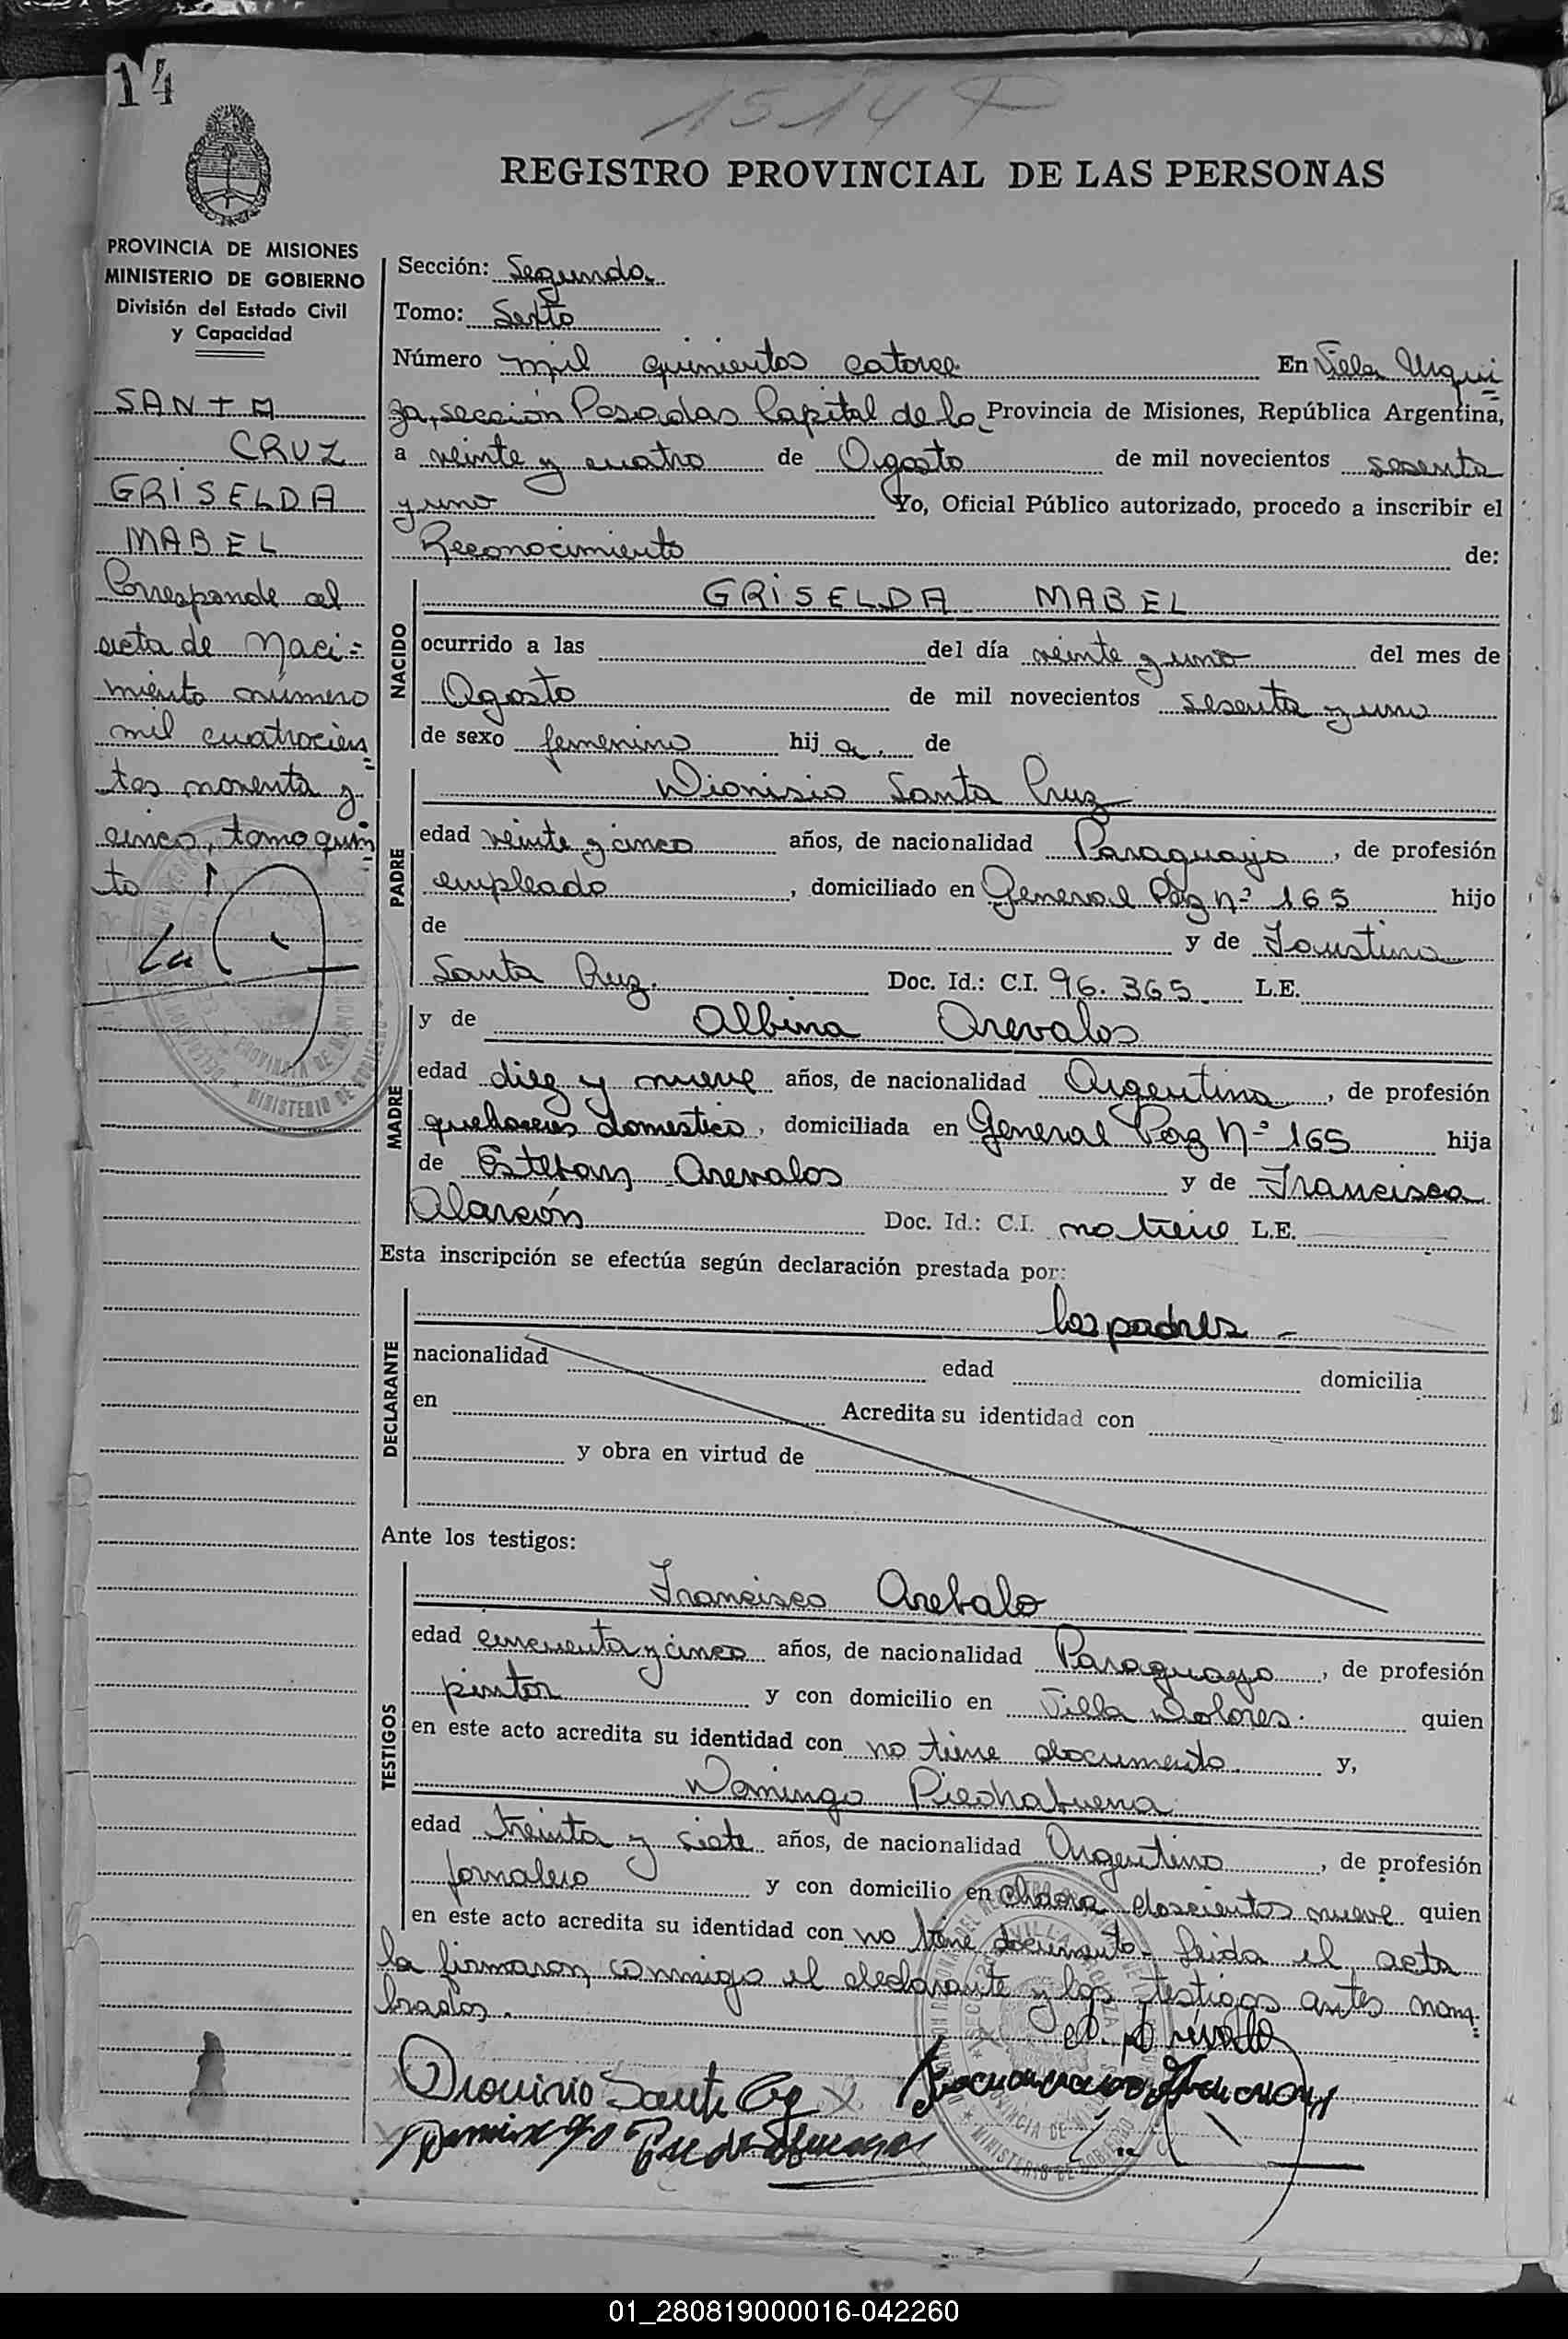 14
1514
REGISTRO PROVINCIAL DE LAS PERSONAS
PROVINCIA DE MISIONES
MINISTERIO DE GOBIERNO
División del Estado Civil
y Capacidad
SANTA
CRUZ
GRISELDA
MABEL
Corresponde al
acta de Naci=
miento número
mil cuatrocien
tos noventa y
cinco, tomo quin
to
Sección: Segunda.
Tomo: Sexto
Número mil quinientos catorce. En Villa Urqui
za, sección Posadas Capital de la Provincia de Misiones, República Argentina,
a veinte y cuatro de Agosto de mil novecientos sesenta
y uno Yo, Oficial Público autorizado, procedo a inscribir el
Reconocimiento de:
NACIDO
GRISELDA MABEL
ocurrido a las del día veinte y uno del mes de
Agosto de mil novecientos sesenta y uno
de sexo femenino hij a, de
PADRE
Dionisio Santa Cruz
edad veinte y cinco años, de nacionalidad Paraguayo, de profesión
empleado, domiciliado en General Paz nº 165 hijo
de y de Faustina
Santa Cruz. Doc. Id.: C.I. 96.365. L.E.
MADRE
y de Albina Arevalos
edad diez y nueve años, de nacionalidad Argentina, de profesión
quehaceres domestico, domiciliada en General Paz Nº 165 hija
de Esteban Arevalos y de Francisca
Alarcón Doc. Id.: C.I. no tiene L.E.
Esta inscripción se efectúa según declaración prestada por:
DECLARANTE
los padres -
nacionalidad edad domicilia
en Acredita su identidad con
y obra en virtud de
Ante los testigos:
TESTIGOS
Francisco Arebalo
edad cincuenta y cinco años, de nacionalidad Paraguayo, de profesión
pintor y con domicilio en Villa Dolores. quien
en este acto acredita su identidad con no tiene documento. y,
Domingo Piedrabuena
edad treinta y siete años, de nacionalidad Argentino, de profesión
jornalero y con domicilio en chacra doscientos nueve quien
en este acto acredita su identidad con no tiene documento. Leida el acta
la firmaron conmigo el declarante y los testigos antes nom=
brados.
Dionicio Santa Cruz
01_280819000016-042260